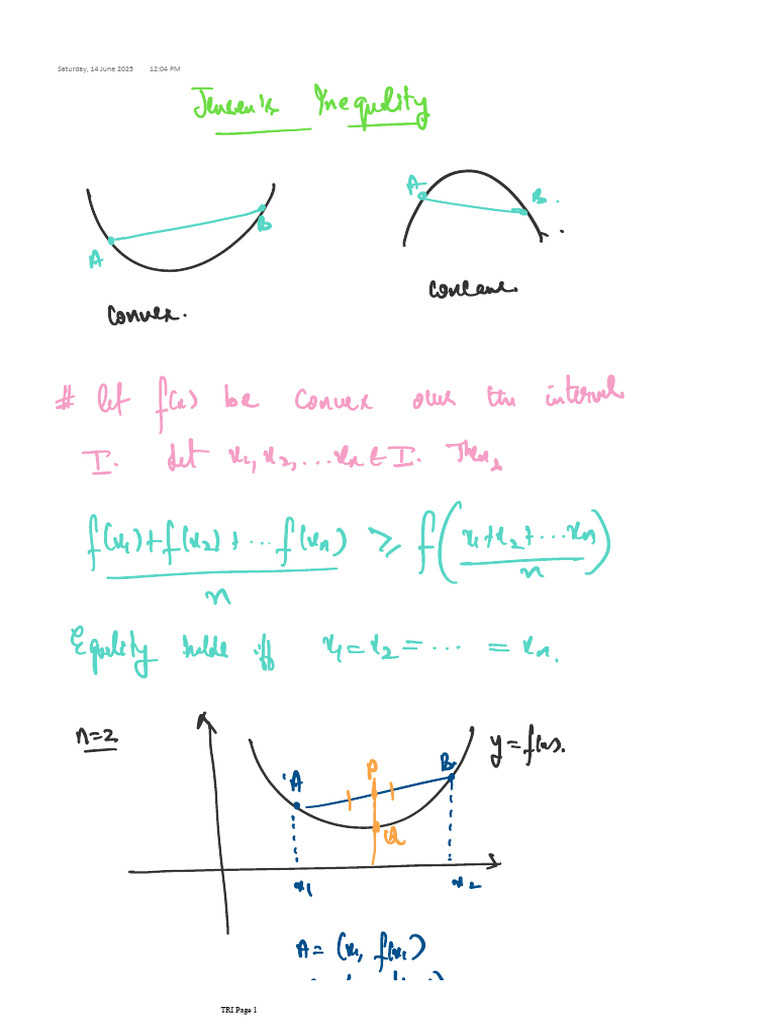 Saturday, 14 June 2025 12:04 PM
Jensen's Inequality
A B
A B
Convex.
Concave.
# Let f(x) be convex over the interval
I. Let x₁, x₂, ... xₙ ∈ I. Then,
(f(x₁) + f(x₂) + ... f(xₙ))/n ≥ f((x₁ + x₂ + ... xₙ)/n)
Equality holds iff x₁ = x₂ = ... = xₙ.
n=2
y = f(x).
A P B
Q
x₁ x₂
A = (x₁, f(x₁))
TRI Page 1